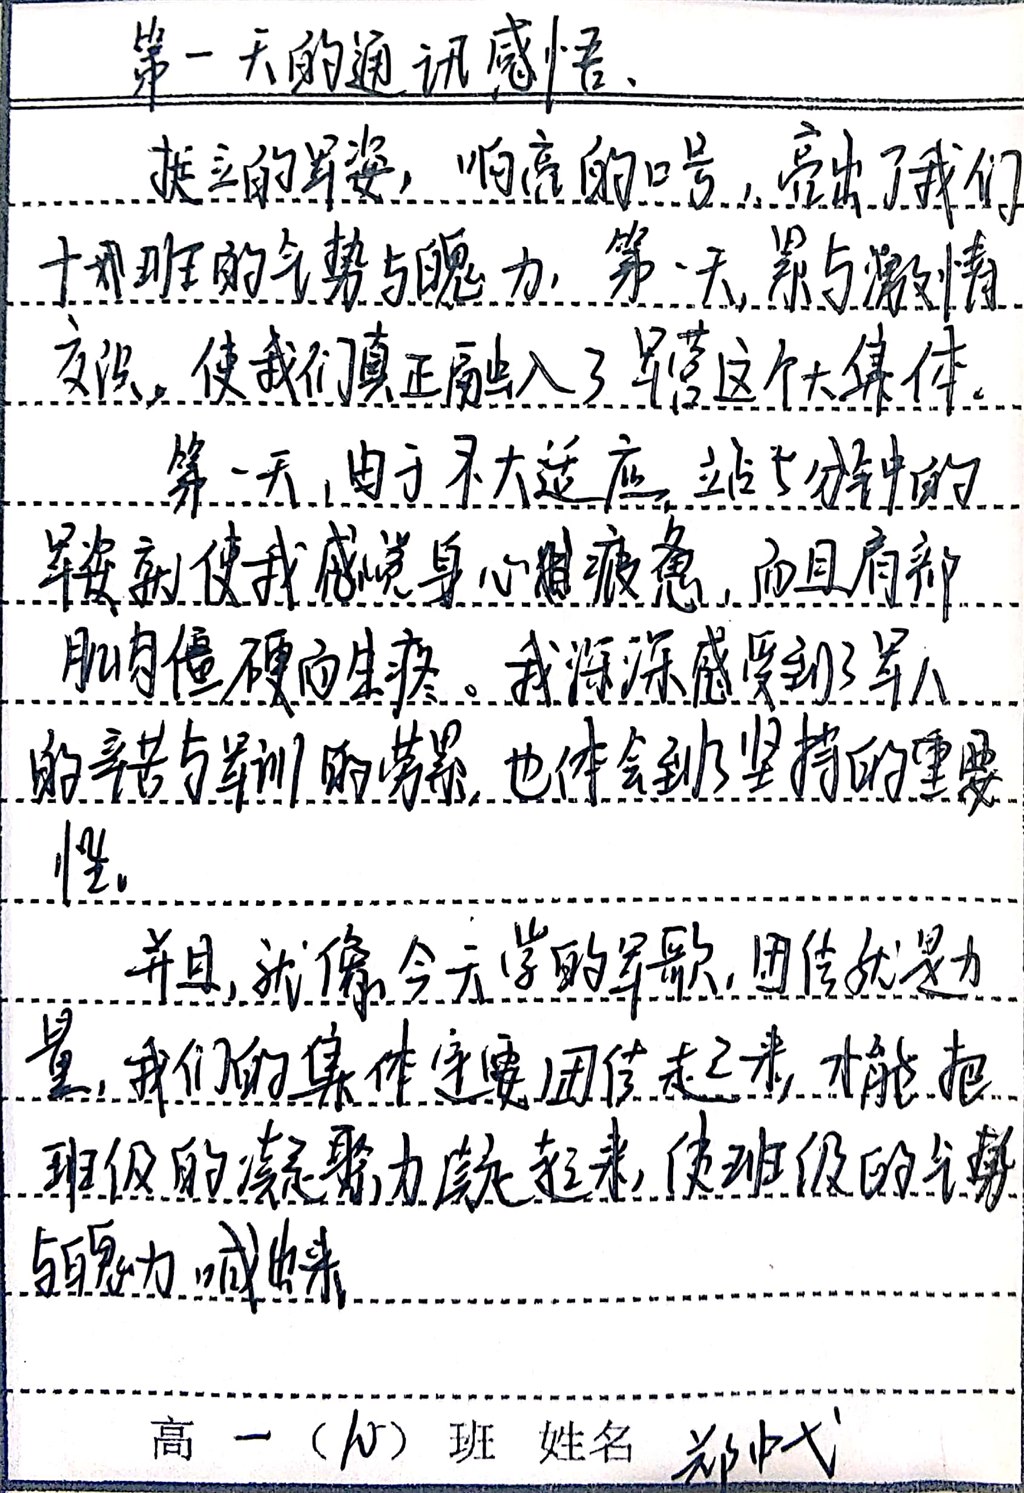 第一天的通讯感悟、
挺立的军姿，响亮的口号，亮出了我们
十班的气势与魄力，第一天，累与激情
交织，使我们真正融入了军营这个大集体。
第一天，由于不大适应，站5分钟的
军姿就使我感觉身心疲惫，而且肩部
肌肉僵硬而生疼。我深深感受到了军人
的辛苦与军训的劳累，也体会到了坚持的重要
性。
并且，就像今天学的军歌，团结就是力
量，我们的集体定要团结起来，才能把
班级的凝聚力凝起来，使班级的气势
与魄力喊出来
高一（）班 姓名 郑